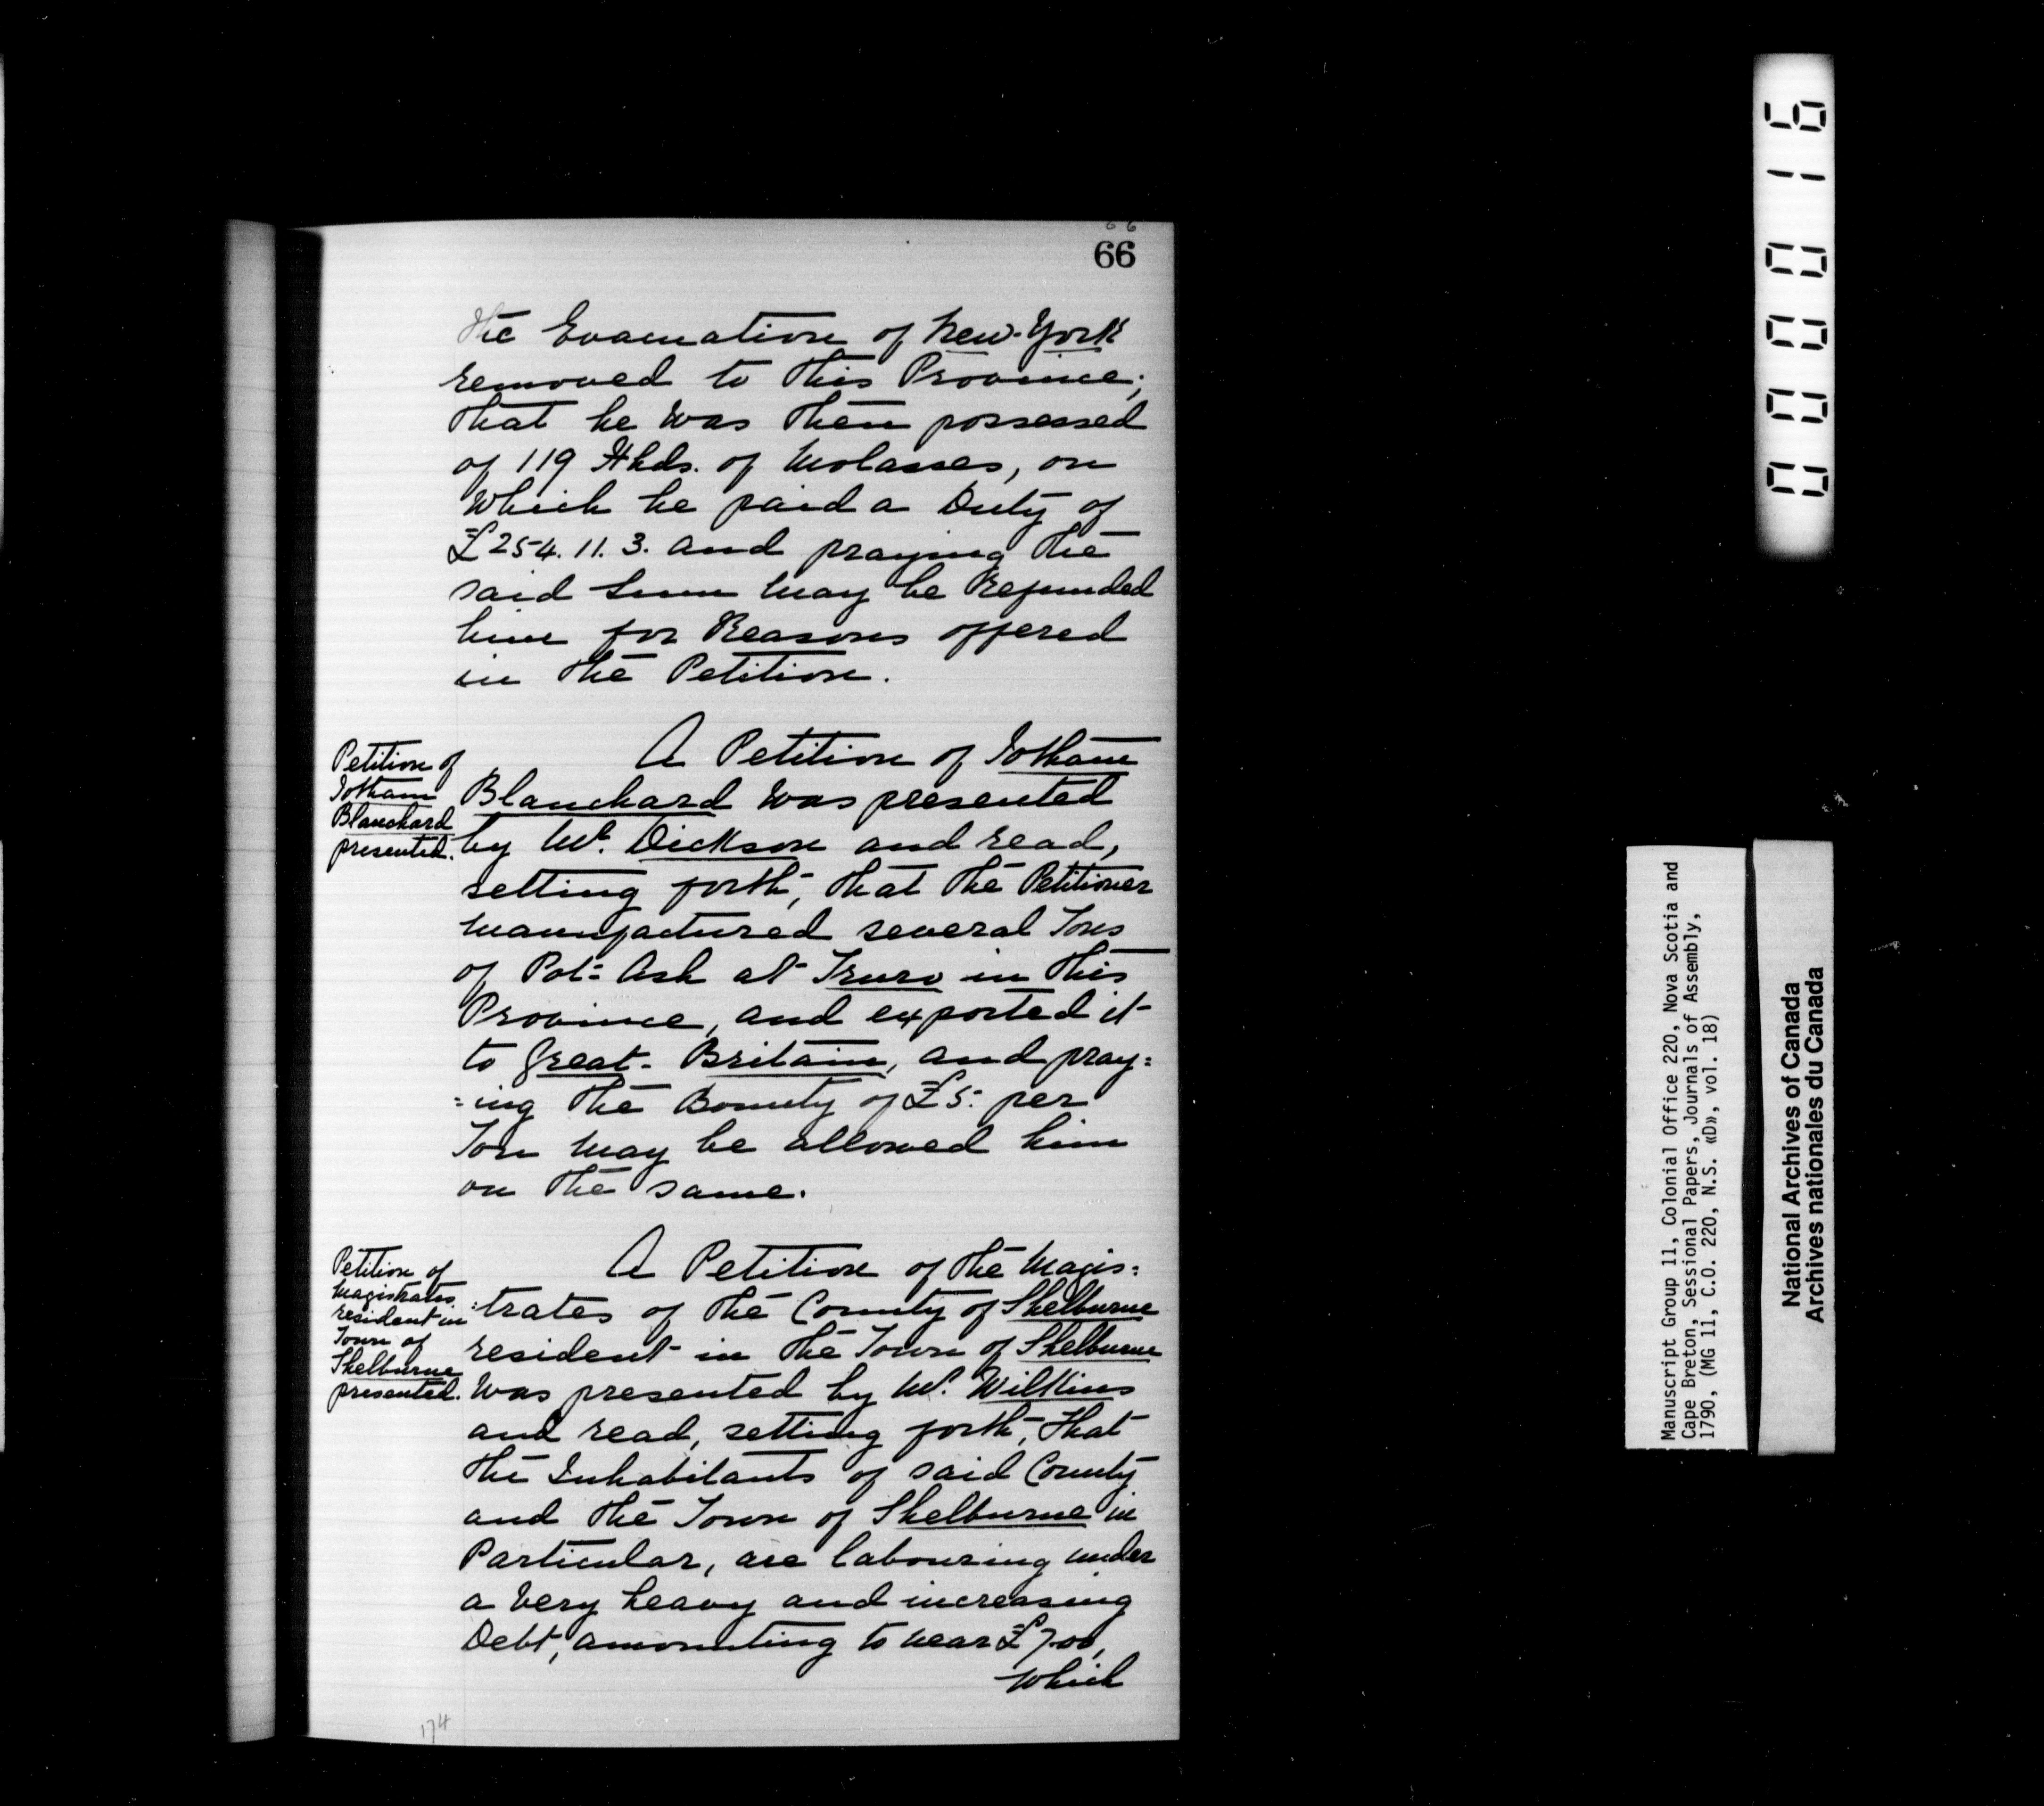 66
66
the Evacuation of New-York
removed to this Province;
that he was then possessed
of 119 Hhds. of Molasses, on
which he paid a Duty of
£254. 11. 3. and praying the
said Sum may be Refunded
him for Reasons offered
in the Petition.
Petition of
Jotham
Blanchard
presented.
A Petition of Jotham
Blanchard was presented
by Mr. Dickson and read,
setting forth, that the Petitioner
manufactured several Tons
of Pot= Ash at Truro in this
Province, and exported it
to Great-Britain, and pray=
=ing the Bounty of £5. per
Ton may be allowed him
on the same.
Petition of
Magistrates
resident in
Town of
Shelburne
presented.
A Petition of the Magis=
=trates of the County of Shelburne
resident in the Town of Shelburne
was presented by Mr. Wilkins
and read, setting forth, that
the Inhabitants of said County
and the Town of Shelburne in
Particular, are labouring under
a very heavy and increasing
Debt, amounting to near £700,
which
174
000016
Manuscript Group 11, Colonial Office 220, Nova Scotia and
Cape Breton, Sessional Papers, Journals of Assembly,
1790, (MG 11, C.O. 220, N.S. «D», vol. 18)
National Archives of Canada
Archives nationales du Canada